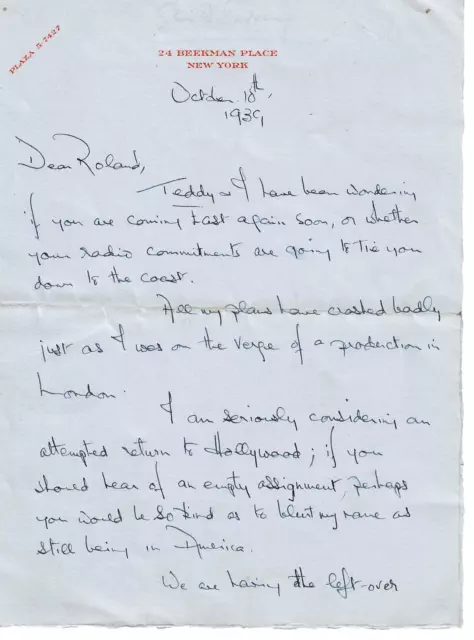 PLAZA 5-7427
24 BEEKMAN PLACE
NEW YORK
October 18th,
1939
Dear Roland,
Teddy & I have been wondering
if you are coming East again soon, or whether
your radio commitments are going to tie you
down to the coast.
All my plans have crashed badly
just as I was on the verge of a production in
London.
I am seriously considering an
attempted return to Hollywood; if you
should hear of an empty assignment, perhaps
you would be so kind as to bleat my name as
still being in America.
We are having the left-over